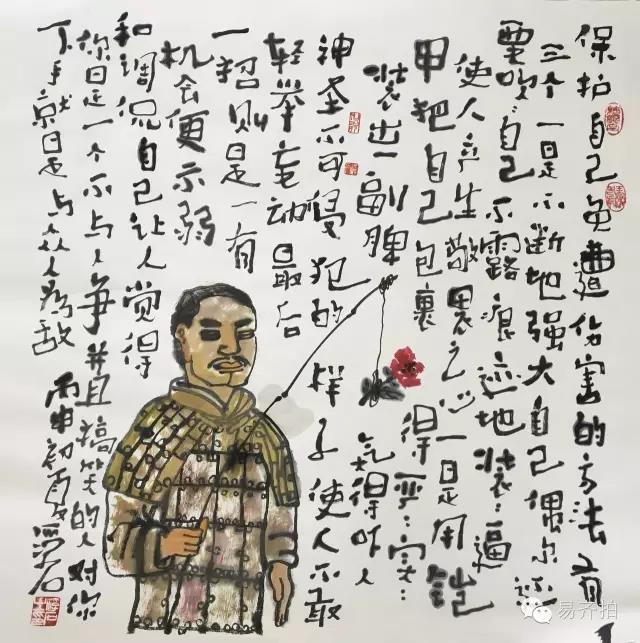 保护自己免遭伤害的方法有
三个一是不断地强大自己偶尔还
要吹:自己不露痕迹地装:逼
使人产生敬畏之心一是用铠
甲把自己包裹得严:实:
装出一副脾气得吓人
神圣不可侵犯的样子使人不敢
轻举妄动最后
一招则是一有
机会便示弱
和调侃自己让人觉得
你是一个不与人争并且搞笑的人对你
下手就是与众人为敌 丙申初夏
易齐拍